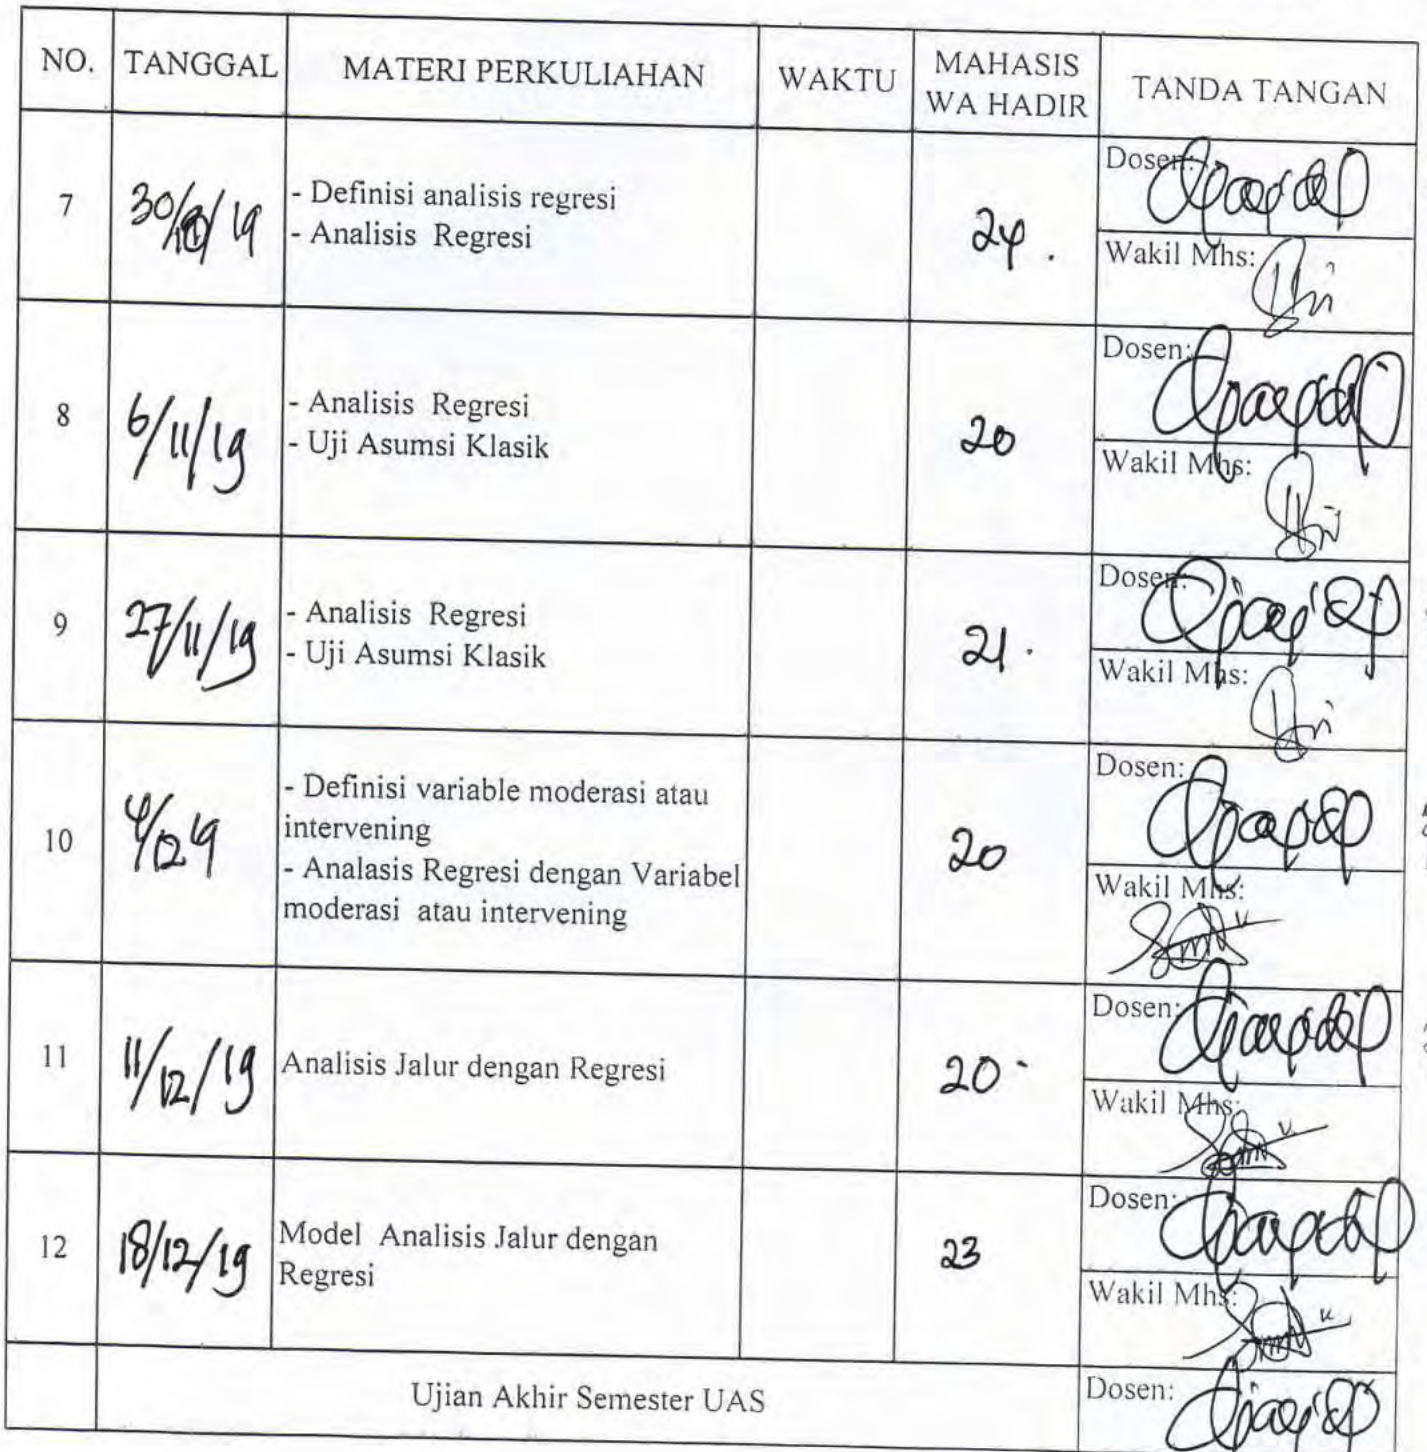 NO. TANGGAL MATERI PERKULIAHAN WAKTU MAHASIS WA HADIR TANDA TANGAN
7 30/10/19 - Definisi analisis regresi
- Analisis Regresi
24.
Dosen:
Wakil Mhs:
8 6/11/19 - Analisis Regresi
- Uji Asumsi Klasik
20
Dosen:
Wakil Mhs:
9 27/11/19 - Analisis Regresi
- Uji Asumsi Klasik
21.
Dosen:
Wakil Mhs:
10 4/12 19 - Definisi variable moderasi atau
intervening
- Analasis Regresi dengan Variabel
moderasi atau intervening
20
Dosen:
Wakil Mhs:
11 11/12/19 Analisis Jalur dengan Regresi
20
Dosen:
Wakil Mhs:
12 18/12/19 Model Analisis Jalur dengan
Regresi
23
Dosen:
Wakil Mhs:
Ujian Akhir Semester UAS
Dosen: